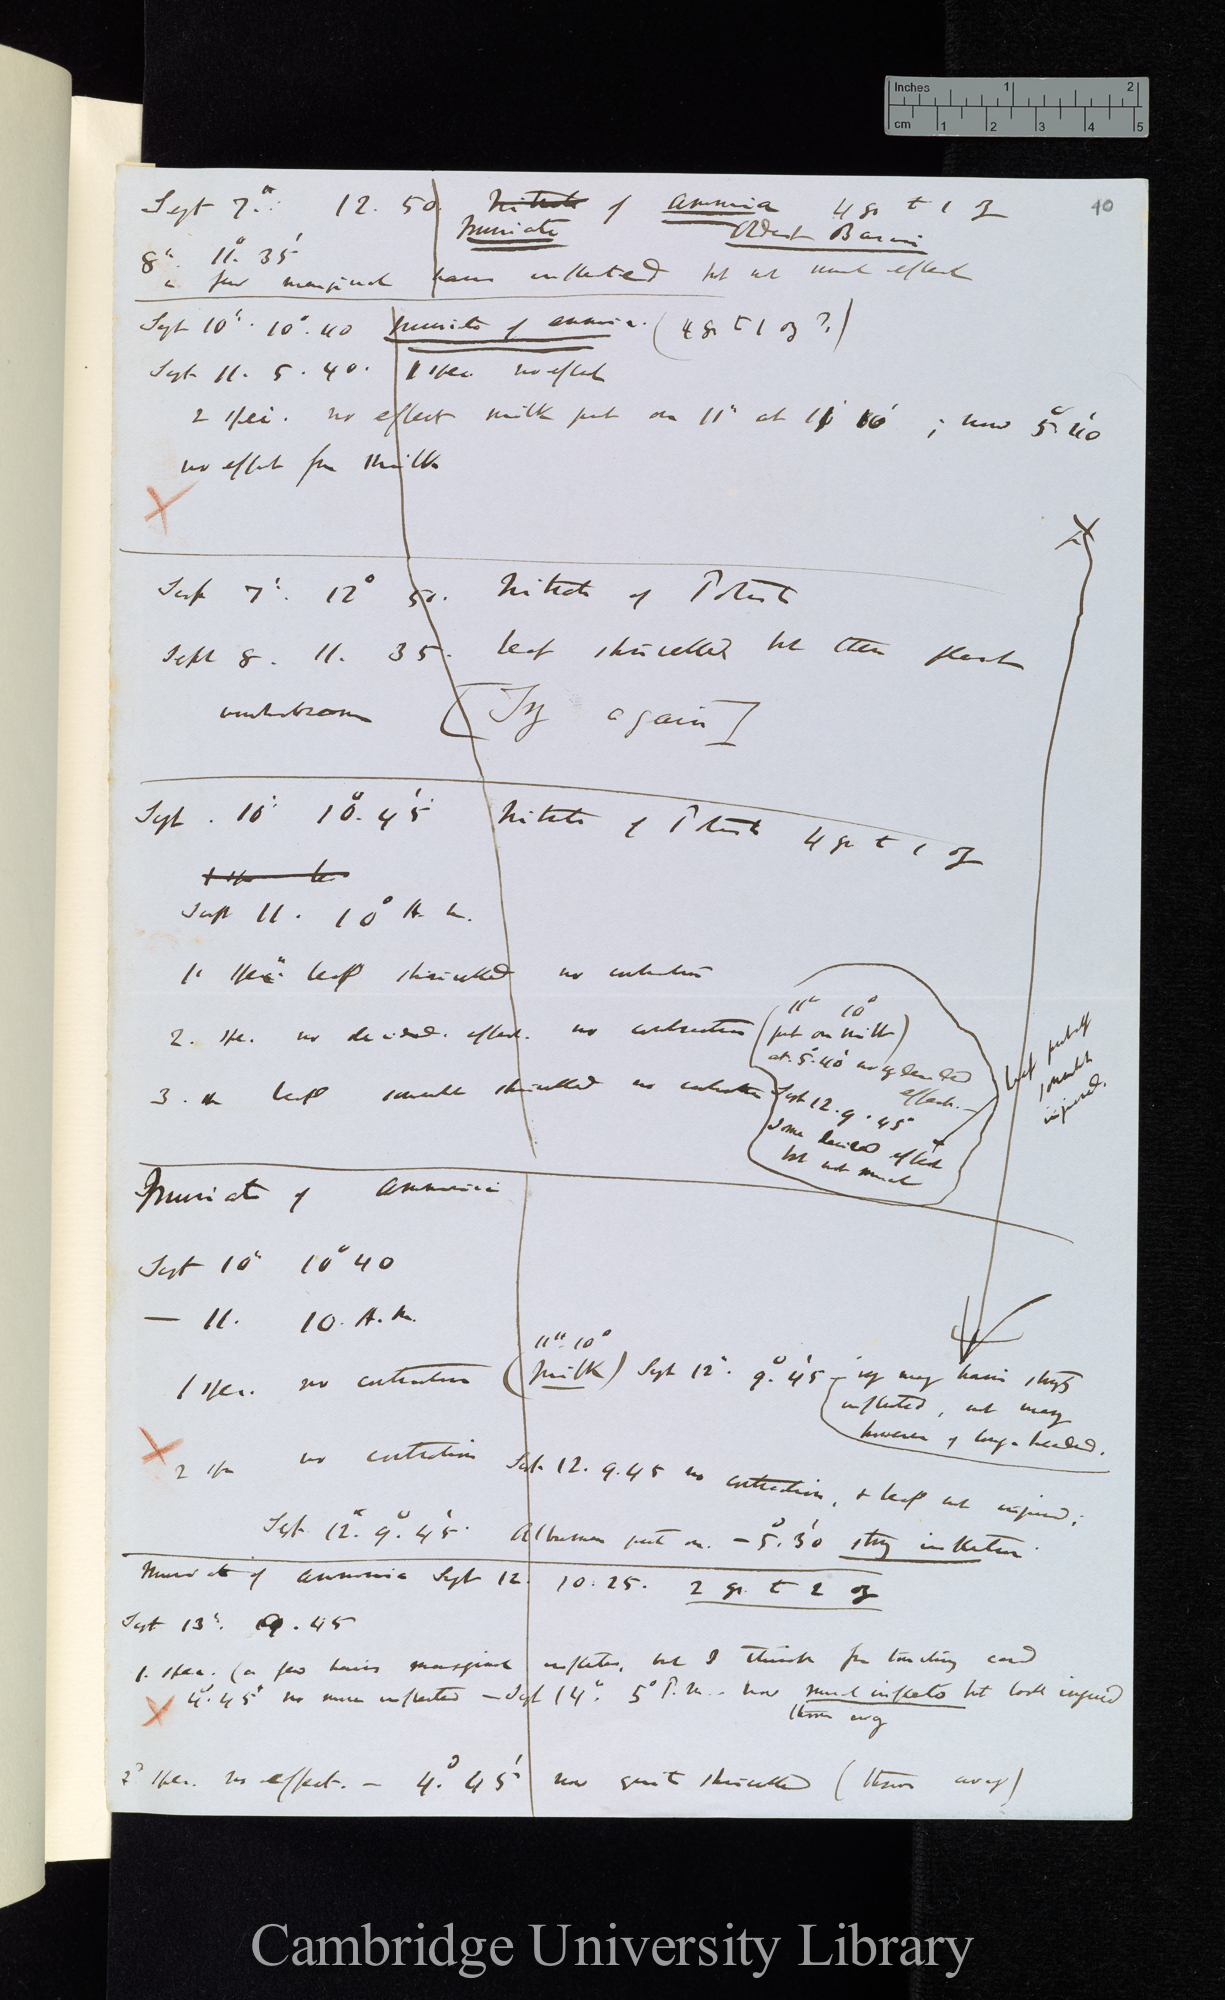 Inches 1 2
cm 1 2 3 4 5
40
Sept 7th. 12. 50 Nitrate of Ammonia 4 gr to 1 oz
Muriate Oldest Basin
8th. 11° 35'
a few marginal hairs inflected but not much effect
Sept 10th. 10°. 40 Muriate of ammonia. (4 gr to 1 oz ?)
Sept 11. 5. 40. 1 spec. no effect
2 spec. no effect milk put on 11th at 10 ; now 5° 40'
no effect from milk
Sept 7th. 12° 50. Nitrate of Potash
Sept 8. 11. 35. leaf shrivelled but then plant
unwholesome [Try again]
Sept. 10th 10°. 45' Nitrate of Potash 4 gr to 1 oz
Sept 11. 10° A. M.
1. spec. leaf shrivelled no contraction
2. spec. no decided effect. no contraction
3. leaf somewhat shrivelled no contraction
(11th 10°
put on milk)
at 5°.40' no decided
effect.—
Sept 12. 9. 45'
Some decided effect
but not much
leaf partly
somewhat
injured.
Muriate of Ammonia
Sept 10th 10° 40
— 11. 10. A. M.
11th 10°
1 spec. no contraction (milk) Sept 12th. 9°. 45' – very many hairs strongly
inflected, not many
however of long-headed.
2 spec no contraction Sept 12. 9. 45 no contraction, & leaf not injured;
Sept 12th. 9°. 45' Albumen put on. – 5°. 30' strong inflection
Muriate of Ammonia Sept 12. 10. 25. 2 gr. to 2 oz
Sept 13th. 9. 45
1. spec. (a few hairs marginal inflected, but I think from touching card
4°. 45' no more inflected – Sept 14th. 5° P. M. – now much inflected but look injured
thrown away
2d spec. no effect. – 4°. 45' now quite shrivelled (thrown away)
Cambridge University Library